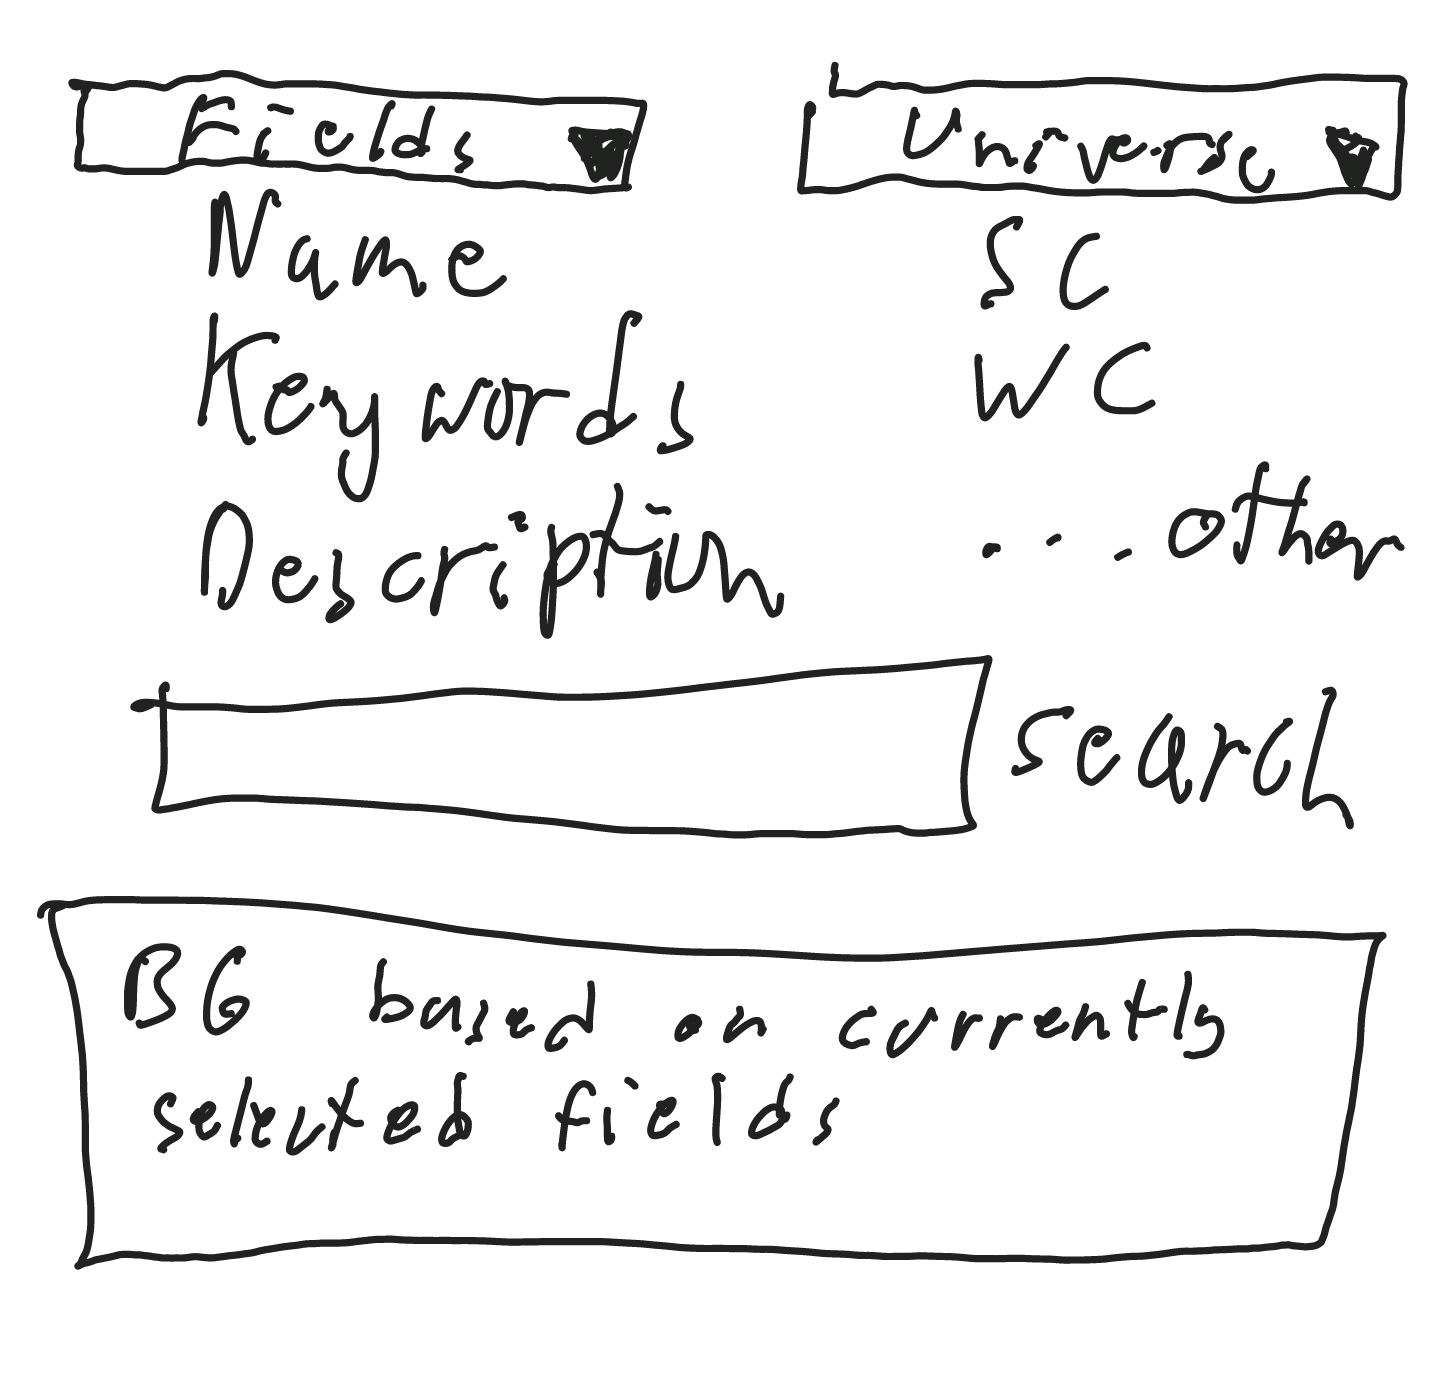 Fields
Universe
Name
Keywords
Description
SC
WC
... other
search
BG based on currently
selected fields